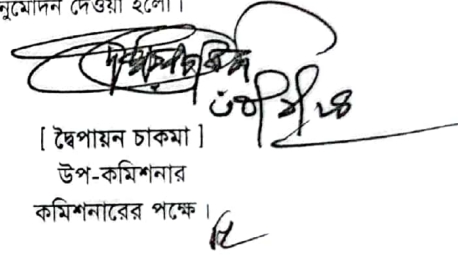 নুমোদন দেওয়া হলো।
[ দ্বৈপায়ন চাকমা ]
উপ-কমিশনার
কমিশনারের পক্ষে।